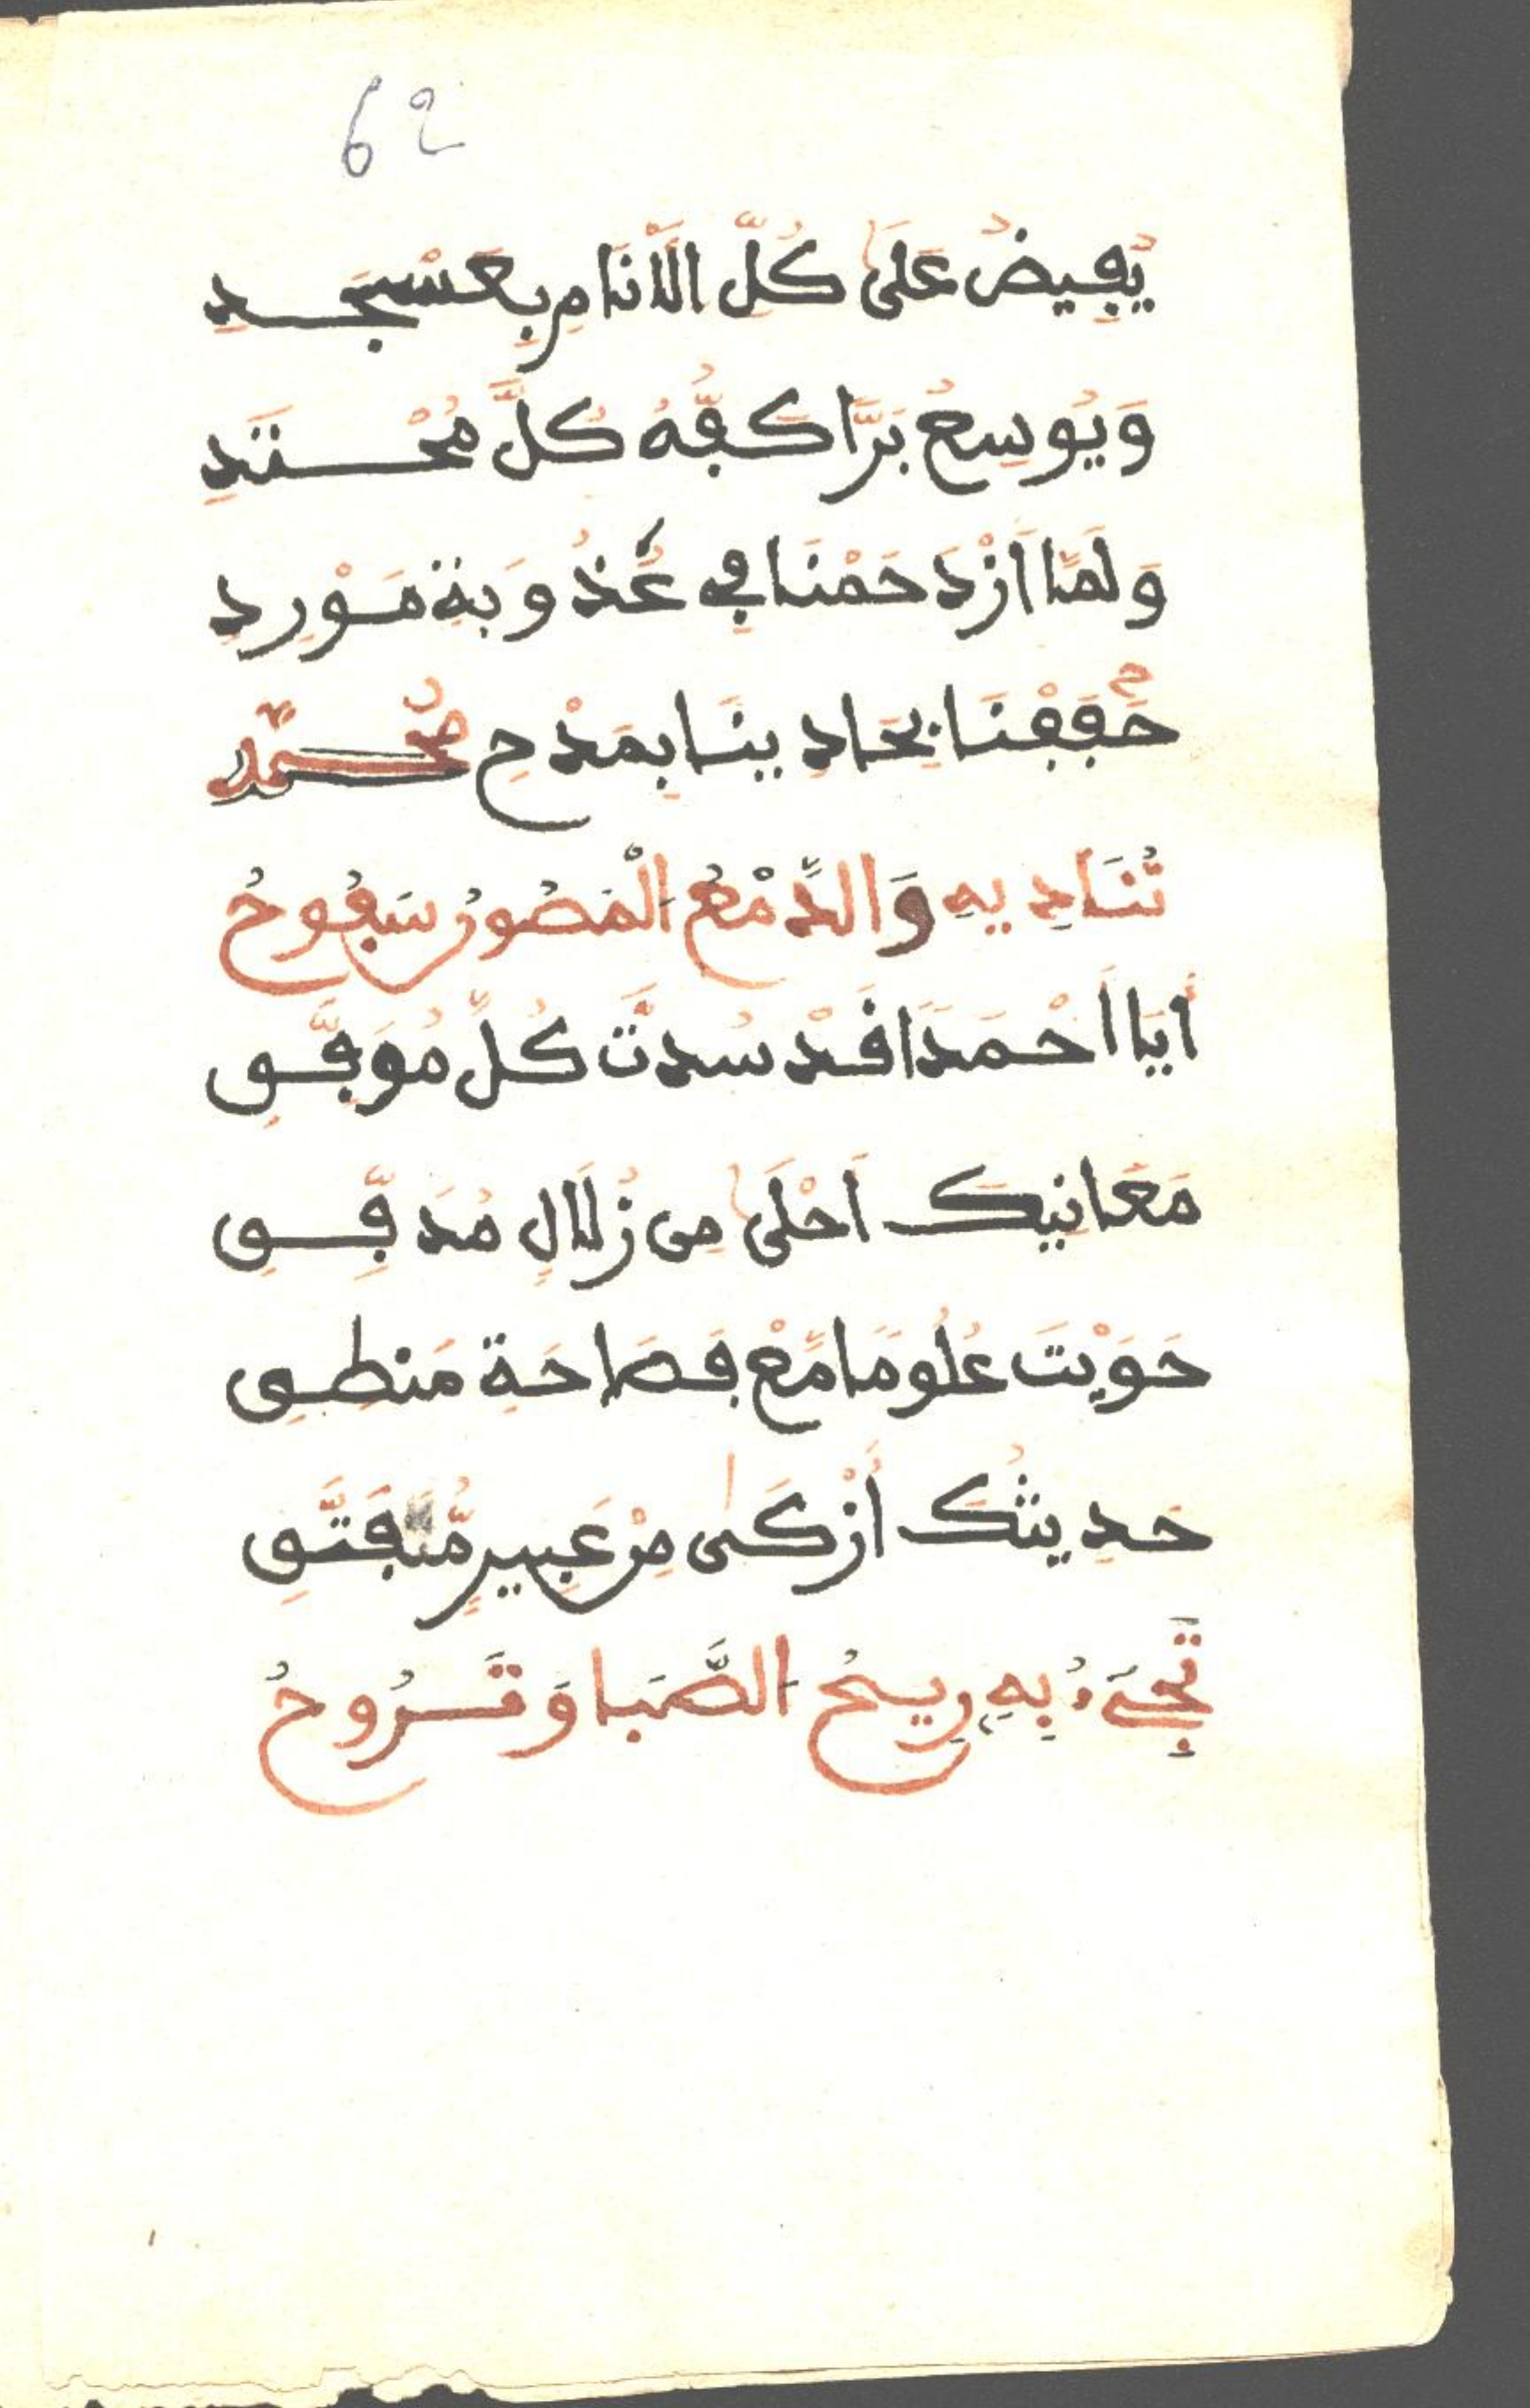 62
يُفِيضُ عَلَى كُلِّ الَانَامِ بِعَسْجَدِ
وَيُوسِعُ بَرًّا كَفُّهُ كُلَّ مُحْتَدِ
وَلَمَّا ازْدَحَمْنَا فِي عُذُوبَةِ مَوْرِدِ
حُفِفْنَا بِحَادِينَا بِمَدْحِ مُحَمَّدِ
تُنَادِيهِ وَالدَّمْعُ الْمَصُورُ سَفُوحُ
أَيَا اَحْمَدَا قَدْ سُدتَّ كُلَّ مُوَفَّقِ
مَعَانِيكَ اَحْلَى مِن زُلَالٍ مُدَفِّقِ
حَوَيْتَ عُلُومًا مَّعْ فَصَاحَةِ مَنطِقِ
حَدِيثُكَ أَزْكَى مِنْ عَبِيرٍ مُّفَتَّقِ
تَجِيءُ بِهِ رِيحُ الصَّبَا وَتَرُوحُ